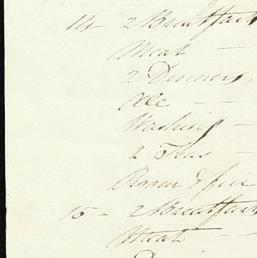 14 2 Breakfast
Meat —
2 Dinners,
Ale —
Washing —
2 Teas —
Room & fire
15 - 2 Breakfast
Meat —